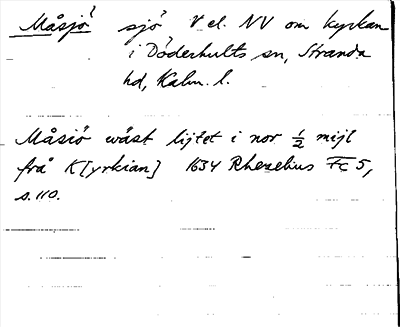 Måsjö! sjö V el. NV om kyrkan
i Döderhults sn, Stranda
hd, Kalm. l.
Måsiö wäst lijtet i nor ½ mijl
frå K[yrkian] 1634 Rhezelius Fc 5,
s. 110.